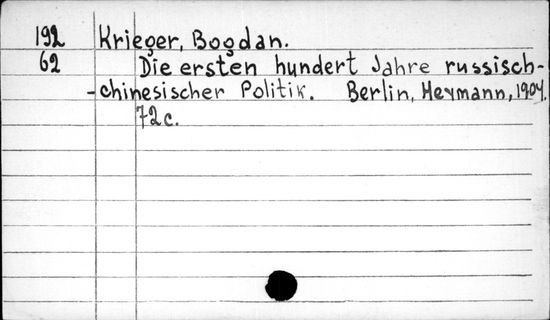 192 Krieger, Bogdan.
62 Die ersten hundert Jahre russisch-
-chinesischer Politik. Berlin, Heymann, 1904.
72 c.